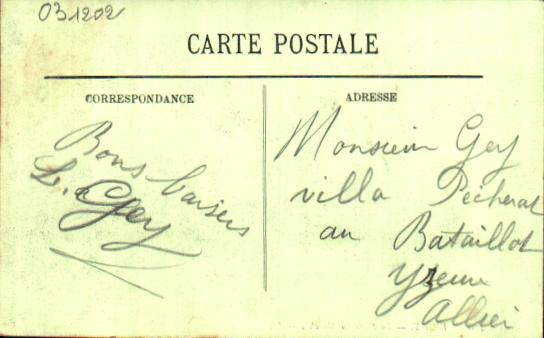 031202
CARTE POSTALE
CORRESPONDANCE
Bons baisers
L. Gey
ADRESSE
Monsieur Gey
villa Pécherat
au Bataillot
Yzeure
Allier